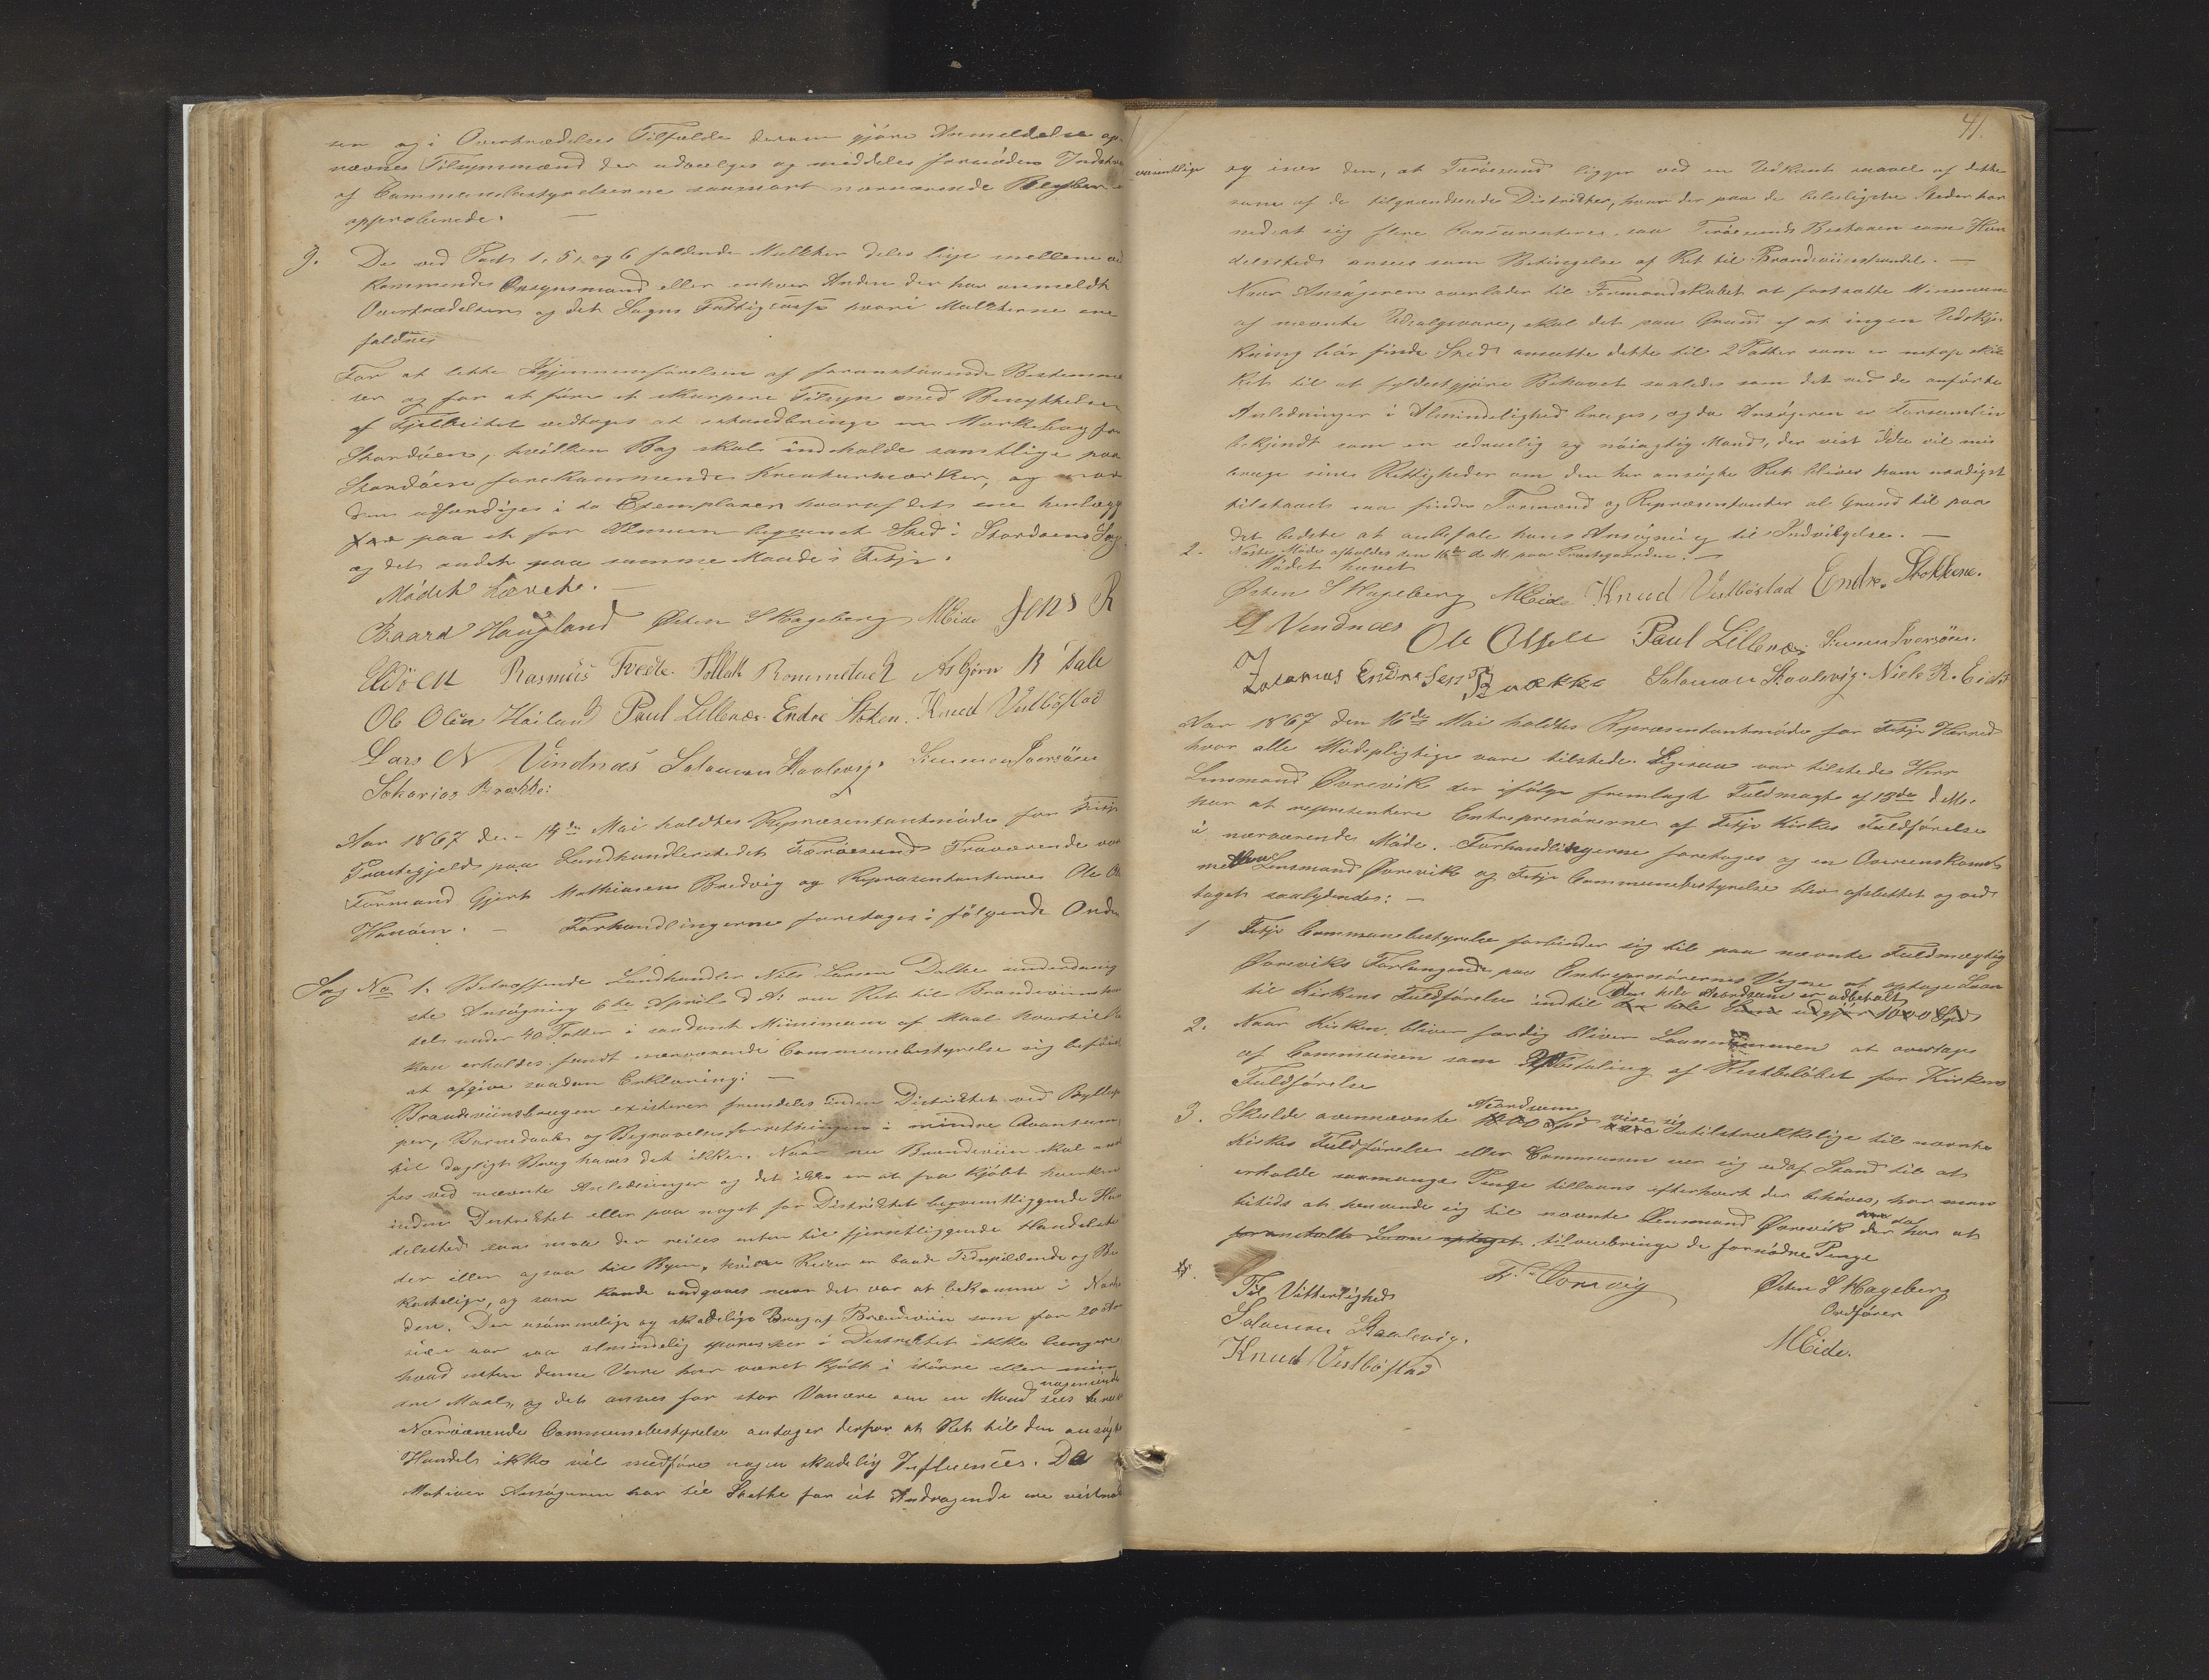 sen og i Overtrædelses Tilfælde derom gjöre Anmeldelse op-
nævnes Tilsynsmænd der udvælges og meddeles fornöden Instrux
af Communebestyrelserne saasnart nærværende Regler ere
approberede. —
9. De ved Post 1, 5, og 6 faldende Mulkter deles lige mellem ved
kommende Opsynsmand eller enhver Anden der har anmeldt
Overtrædelsen og det Sogns Fattigcasse hvori Mulkterne ere
faldne
For at lette Gjennemförelsen af foranstaaende Bestemmel
ser og for at före et skarpere Tilsyn med Benyttelsen
af Fjeldbeitet vedtages at istandbringe en Markebog for
Stordöen, hvilken Bog skal indeholde samtlige paa
Stordöen forekommende Kreaturmærker, og
den udfærdiges i to Exemplarer hvoraf det ene henlægg
paa et for Almuen beqvemt Sted i Stordöens Sogn
og det andet paa samme Maade i Fitje.
Mödet hævet. —
Baard Haugland Østen S Hageberg MEide Jens R
Eldöen Rasmus Tvedte Tollak Rommetvedt Asbjørn B Dale
Ole Olsen Hailand Paul Lillenæs Endre Stoken. Knud Vestböstad
Lars N Vindnæs Salamon Skalevig. Simmon Iversöen
Sakarias Brække:
Aar 1867 den 14de Mai holdtes Repræsentantmöde for Fitje
Præstegjeld paa Landhandlerstedet Færöesund Fraværende var
Formand Gjert Mathiasen Bredvig og Repræsentanterne Ole Ols
Hanöen. — Forhandlingerne foretages i fölgende Orden
Sag No 1. Betræffende Landhandler Nils Larsen Dalhe underdanig
ste Ansögning 6te April d. A: om Ret til Brændeviinshan
del under 40 Potter i saadant Minimum af Maal hvortil Ret
kan erholdes fandt nærværende Communebestyrelse sig beföiet
at afgive saadan Erklæring: —
Brændeviinsbrugen existerer fremdeles inden Districtet ved Bryllup
per, Barnedaab og Begravelsesforretninger i mindre Qvantum,
til dagligt Brug haves det ikke. Naar nu Brændeviin skal
jes ved nævnte Anledninger og det ikke er at faa kjöbt hverken
inden Destriktet eller paa noget for Districtet beqvemtliggende Han
delssted saa maa der reises enten til fjerntliggende Handelsste
der eller ogsaa til Byen, hvilke Reiser er baade Tidspildende og Be
kostelige, og som kunde undgaaes naar det var at bekomme i Nær
den. Den usömmelige og skadelige Brug af Brændeviin som for 20 Aar
siden var saa almindelig spores her i Districtet ikke længere
hvad enten denne Vare har været kjöbt i större eller min
dre Maal, og det ansees for stor Vanære om en Mand sees
Nærværende Communebestyrelse antager derfor at Ret til den ansögte
Handel ikke vil medföre nogen skadelig Influences. De
Motiver Ansögeren har til Støtte for sit Andragende ere vistnok
41.
væsentlige og især den, at Færöesund ligger ved en Udkant saavel af dette
som af de tilgrændsende Districter, hvor der paa de beleiligste Steder har
nedsat sig flere Concurrenter, saa Færöesunds Bestaaen som Han
delssted ansees som Betingelse af Ret til Brændeviinshandel. —
Naar Ansögeren overlader til Formandskabet at fastsætte Minimum
af nævnte Udsalgsvare, skal det paa Grund af at ingen Udskjæn
kning bör finde Sted ansætte dette til 2 Potter som er netop stræk
kel til at fyldestgjöre Behovet saaledes som det ved de anförte
Anledninger i Almindelighed bruges, og da Ansögeren er Forsamlin
bekjendt som en ædruelig og nöiagtig Mand, der vist ikke vil mis
bruge sine Rettigheder om den her ansögte Ret bliver ham naadigst
tilstaaet saa finder Formænd og Repræsentanter al Grund til paa
det bedste at anbefale hans Ansögning til Indvilgelse. —
2. Næste Möde afholdes den 16de d. M. paa Præstegaarden. —
Mödet hævet
Østen S Hageberg MEide Knud Vestböstad Endre Stokkene.
LN Vendnæs Ole Olsen Paul Lillenæs Simmon Iversöen.
Zakarias Endresen Brække Salamon Skalevig. Niels R. Eide
Aar 1867 den 16de Mai holdtes Repræsentantmöde for Fitje Herred
hvor alle Mödepligtige vare tilstede. Ligesaa var tilstede Herr
Lensmand Øvrevik der ifölge fremlagt Fuldmagt af 13de d. Ms.
har at representere Entreprenörerne af Fitje Kirkes Fuldförelse
i nærværende Möde. Forhandlingerne foretages og en Overeenskomst
mellem Lensmand Øvrevik og Fitje Communebestyrelse blev afsluttet og ved
taget saalydende: —
1 Fitje Communebestyrelse forbinder sig til paa nævnte Fuldmægtig
Øvreviks Forlangende paa Entreprenörernes Vegne at optage Laan
til Kirkens Fuldförelse indtil den hele Akordsum er udbetalt
2. Naar Kirken bliver færdig bliver Laanesummen at overtage
af Communen som Afbetaling af Restbelöbet for Kirkens
Fuldförelse
3. Skulde overnævnte Akordsum vise sig utilstrækkelige til nævnte
Kirkes Fuldförelse eller Communen seer sig udaf Stand til at
erholde saamange Penge tillaans efterhvert der behöves, har man
itide at henvende sig til nævnte Lensmand Øvrevik der da har at
foranstalte Laane optaget tilveiebringe de fornödne Penge
Til Vitterlighed
Salamon Skalevig.
Knud Vestböstad
Østen S Hageberg
Ordförer
MEide.